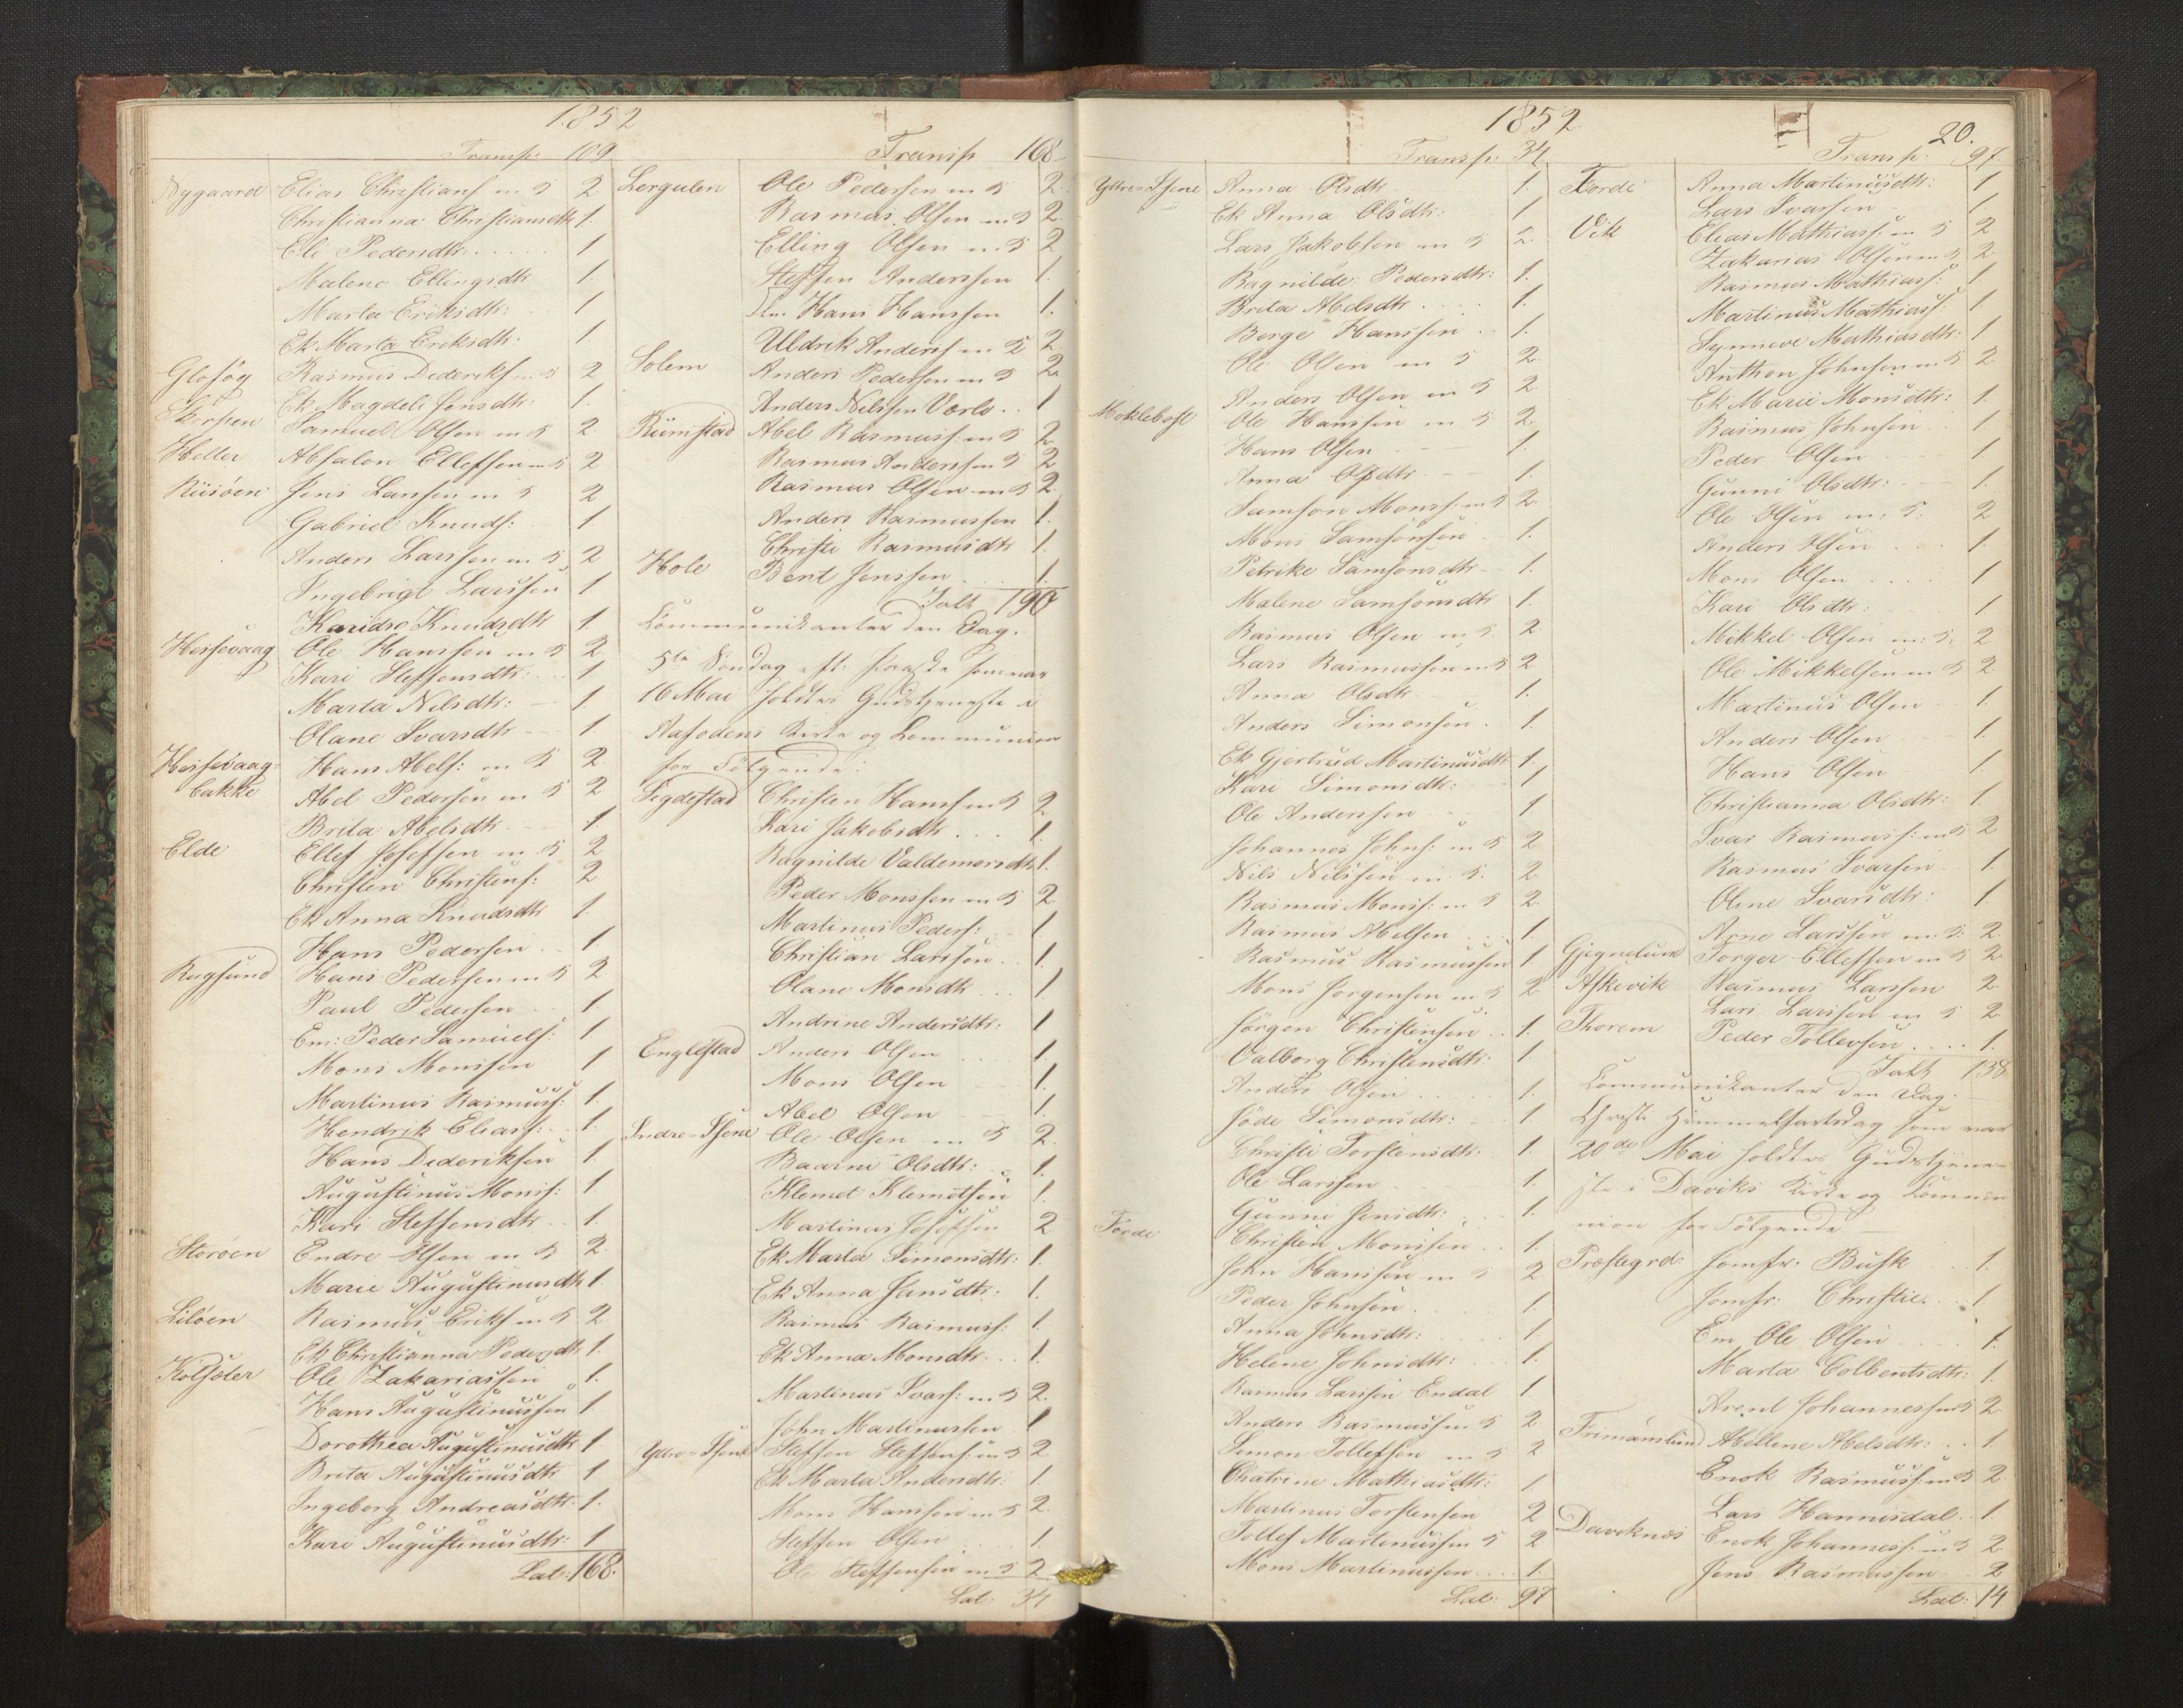 1852
Transp: 109
Nygaard Elias Christians m 5 2
Christianna Christiansdtr 1.
Eli Pedersdtr 1
Malene Ellingsdtr 1.
Marta Eriksdtr: 1
Ek Marta Eriksdtr: 1
Rasmus Dederiks m 5 2
Ek Magdeli Jensdtr: 1.
Samuel Olsen m 5 2
Heller Absalon Ellefsen m 5 2
Riisöen Jens Larssen m 5 2
Gabriel Knuds: 1.
Anders Larssen m 5 2
Ingebrigt Larssen 1
Knudsdtr 1
Hessevaag Ole Hanssen m 5 2
Kari Steffensdtr: 1
Marta Nilsdtr: 1.
Olane Ivarsdtr 1
Hessevaag= Hans Abels: m 5 2.
bakke Abel Pedersen m 5 2
Brita Abelsdtr 1.
Elde Ellef Josefsen m 5 2
Christen Christens: 2
Ek Anna Knudsdtr 1.
Hans Pedersen 1
Rugsund Hans Pedersen m 5 2
Paul Pedersen 1.
Em: Peder Samuels: 1
Mons Monssen 1
Martinus Rasmuss: 1.
Hendrik Elias: 1.
Hans Dideriksen 1.
Augustinus Monss: 1
Kari Steffensdtr 1.
Storöen Endre Olsen m 5 2.
Marie Augustinusdtr 1.
Liløen Rasmus Eriks m 5 2
Ek Christianna Pedersdtr 1.
Kolsæter Ole Zakariassen 1.
Hans Augustinussen 1.
Dorothea Augustinusdtr 1
Brita Augustinusdtr 1
Ingeborg Andreasdtr: 1.
Kari Augustinusdtr: 1
Lat: 168.
Transp 168
Lergulen Ole Pedersen m 5 2.
Rasmus Olsen m 5 2.
Elling Olsen m 5 2
Steffen Anderssen 1.
Hans Hanssen 1.
Uldrik Anders m 5 2
Solem Anders Pedersen m 5 2.
Anders Nilssen 1
Rimstad Abel Rasmuss: m 5 2
Rasmus Anderssen 5 2
Rasmus Olsen m 5 2.
Anders Rasmussen 1.
Christi Rasmusdtr 1.
Hole Bent Jenssen 1.
Ialt 190
Communikanter den Dag.
5te Søndag eft: Paaske som var
16 Mai holdtes Gudstjeneste i
Aafodens Kirke og Communion
for Følgende:
Sigdestad Christen Hanssen 5 2
Kari Jakobsdtr 1.
Ragnilde Valdemorsdtr 1.
Peder Monssen m 5 2
Martinus Peders: 1
Christian Larssen 1.
Olane Monsdtr 1
Andrine Andersdtr: 1
Englestad Anders Olsen 1.
Mons Olsen 1.
Abel Olsen 1.
Indre= Ole Olsen m 5 2.
Olsdtr: 1.
Klemet Klemetsen 1.
Martinus Josefsen 2
Ek Marta Simonsdtr: 1.
Ek Anna Jansdtr: 1.
Rasmus Rasmuss: 1.
Ek Anna Monsdtr: 1.
Martinus Ivars: m 5 2.
John Martinussen 1
Ytre= Steffen Steffens: m 5 2
Ek Marta Andersdtr: 1
Mons Hanssen m 5 2.
Steffen Olsen 1.
Ole Steffensen m 5 2
Lat: 34
1852
Transp: 34
Anna Olsdtr 1.
Ek Anna Olsdtr: 1
Lars Jakobsen m 5 2.
Ragnilde Pedersdtr: 1.
Brita Abelsdtr 1.
Børge Hanssen 1.
Ole Olsen m 5 2.
Anders Olsen m 5 2
Moklebost Ole Hanssen m 5 2.
Hans Olsen 1.
Anna Olsdtr 1.
Samson Monss: m 5 2.
Mons Samsonsen 1.
Petrike Samsonsdtr 1.
Malene Samsonsdtr 1.
Rasmus Olsen m 5 2
Lars Rasmussen m 5 2
Anna Olsdtr 1.
Anders Simonsen 1.
Ek Gjertrud Martinusdtr 1.
Kari Simonsdtr: 1
Ole Anderssen 1
Johannes Johns: m 5 2
Nils Nilssen m 5. 2.
Rasmus Monss: m 5 2.
Rasmus Abelsen 1.
Rasmus Rasmussen 1
Mons Jørgensen m 5 2
Jørgen Christensen 1.
Valborg Christensdtr: 1.
Anders Olsen 1.
Simonsdtr: 1
Christi Torstensdtr: 1.
Ole Larssen 1.
Gunni Jensdtr: 1.
Førde Christen Monssen 1.
John Hanssen m 5 2
Peder Johnsen 1.
Anna Johnsdtr: 1
Helene Johnsdtr: 1.
Rasmus Larssen Endal 1.
Anders Rasmussen 5 2
Simon Tollefsen m 5 2
Chatrine Mathiasdtr: 1.
Martinus Torstensen 2
Tollef Martinussen 5 2
Mons Martinussen 1.
Lat: 97
20.
Transp: 97
Førde Anna Martinusdtr: 1
Lars Ivarsen 1.
Vik Elias Mathiass: m 5 2
Zakarias Olsen m 5 2
Rasmus Mathiass: 1.
Martinus Mathiass: 1.
Synneve Mathiasdtr: 1
Anthon Johnsen m 5 2
Ek Marie Monsdtr: 1.
Rasmus Johnsen 1.
Peder Olsen 1
Gunni Olsdtr: 1.
Ole Olsen m: 5. 2
Anders Olsen 1.
Mons Olsen 1
Kari Olsdtr: 1
Mikkel Olsen m: 5. 2
Ole Mikkelsen m 5 2
Martinus Olsen 1.
Anders Olsen 1.
Hans Olsen 1.
Christianna Olsdtr: 1.
Ivar Rasmuss: m 5 2
Rasmus Ivarsen 1.
Oline Ivarsdtr: 1.
Arne Larssen m: 5: 2.
Gjegnelund Torger Ellefsen m 5 2
Askevik Rasmus Larssen 2
Lars Larssen m 5 2.
Thorem Peder Tollevsen 1.
Ialt 138
Communikanter den Dag.
Christi Himmelfartsdag som var
20de Mai holdtes Gudstjene=
ste i Daviks Kirke og Commu
nion for Følgende
Præstegrd Jomfr: Busk 1.
Jomfr: Christie 1
Em Ole Olsen 1.
Marta Colbentsdtr: 1.
Arent Johannessen 5 2
Abellene Abelsdtr: 1.
Enok Rasmuss: m 5 2
Lars Hannisdal 1.
Daviknes Enok Johanness: m 5 2
Jens Rasmussen 2
Lat: 14